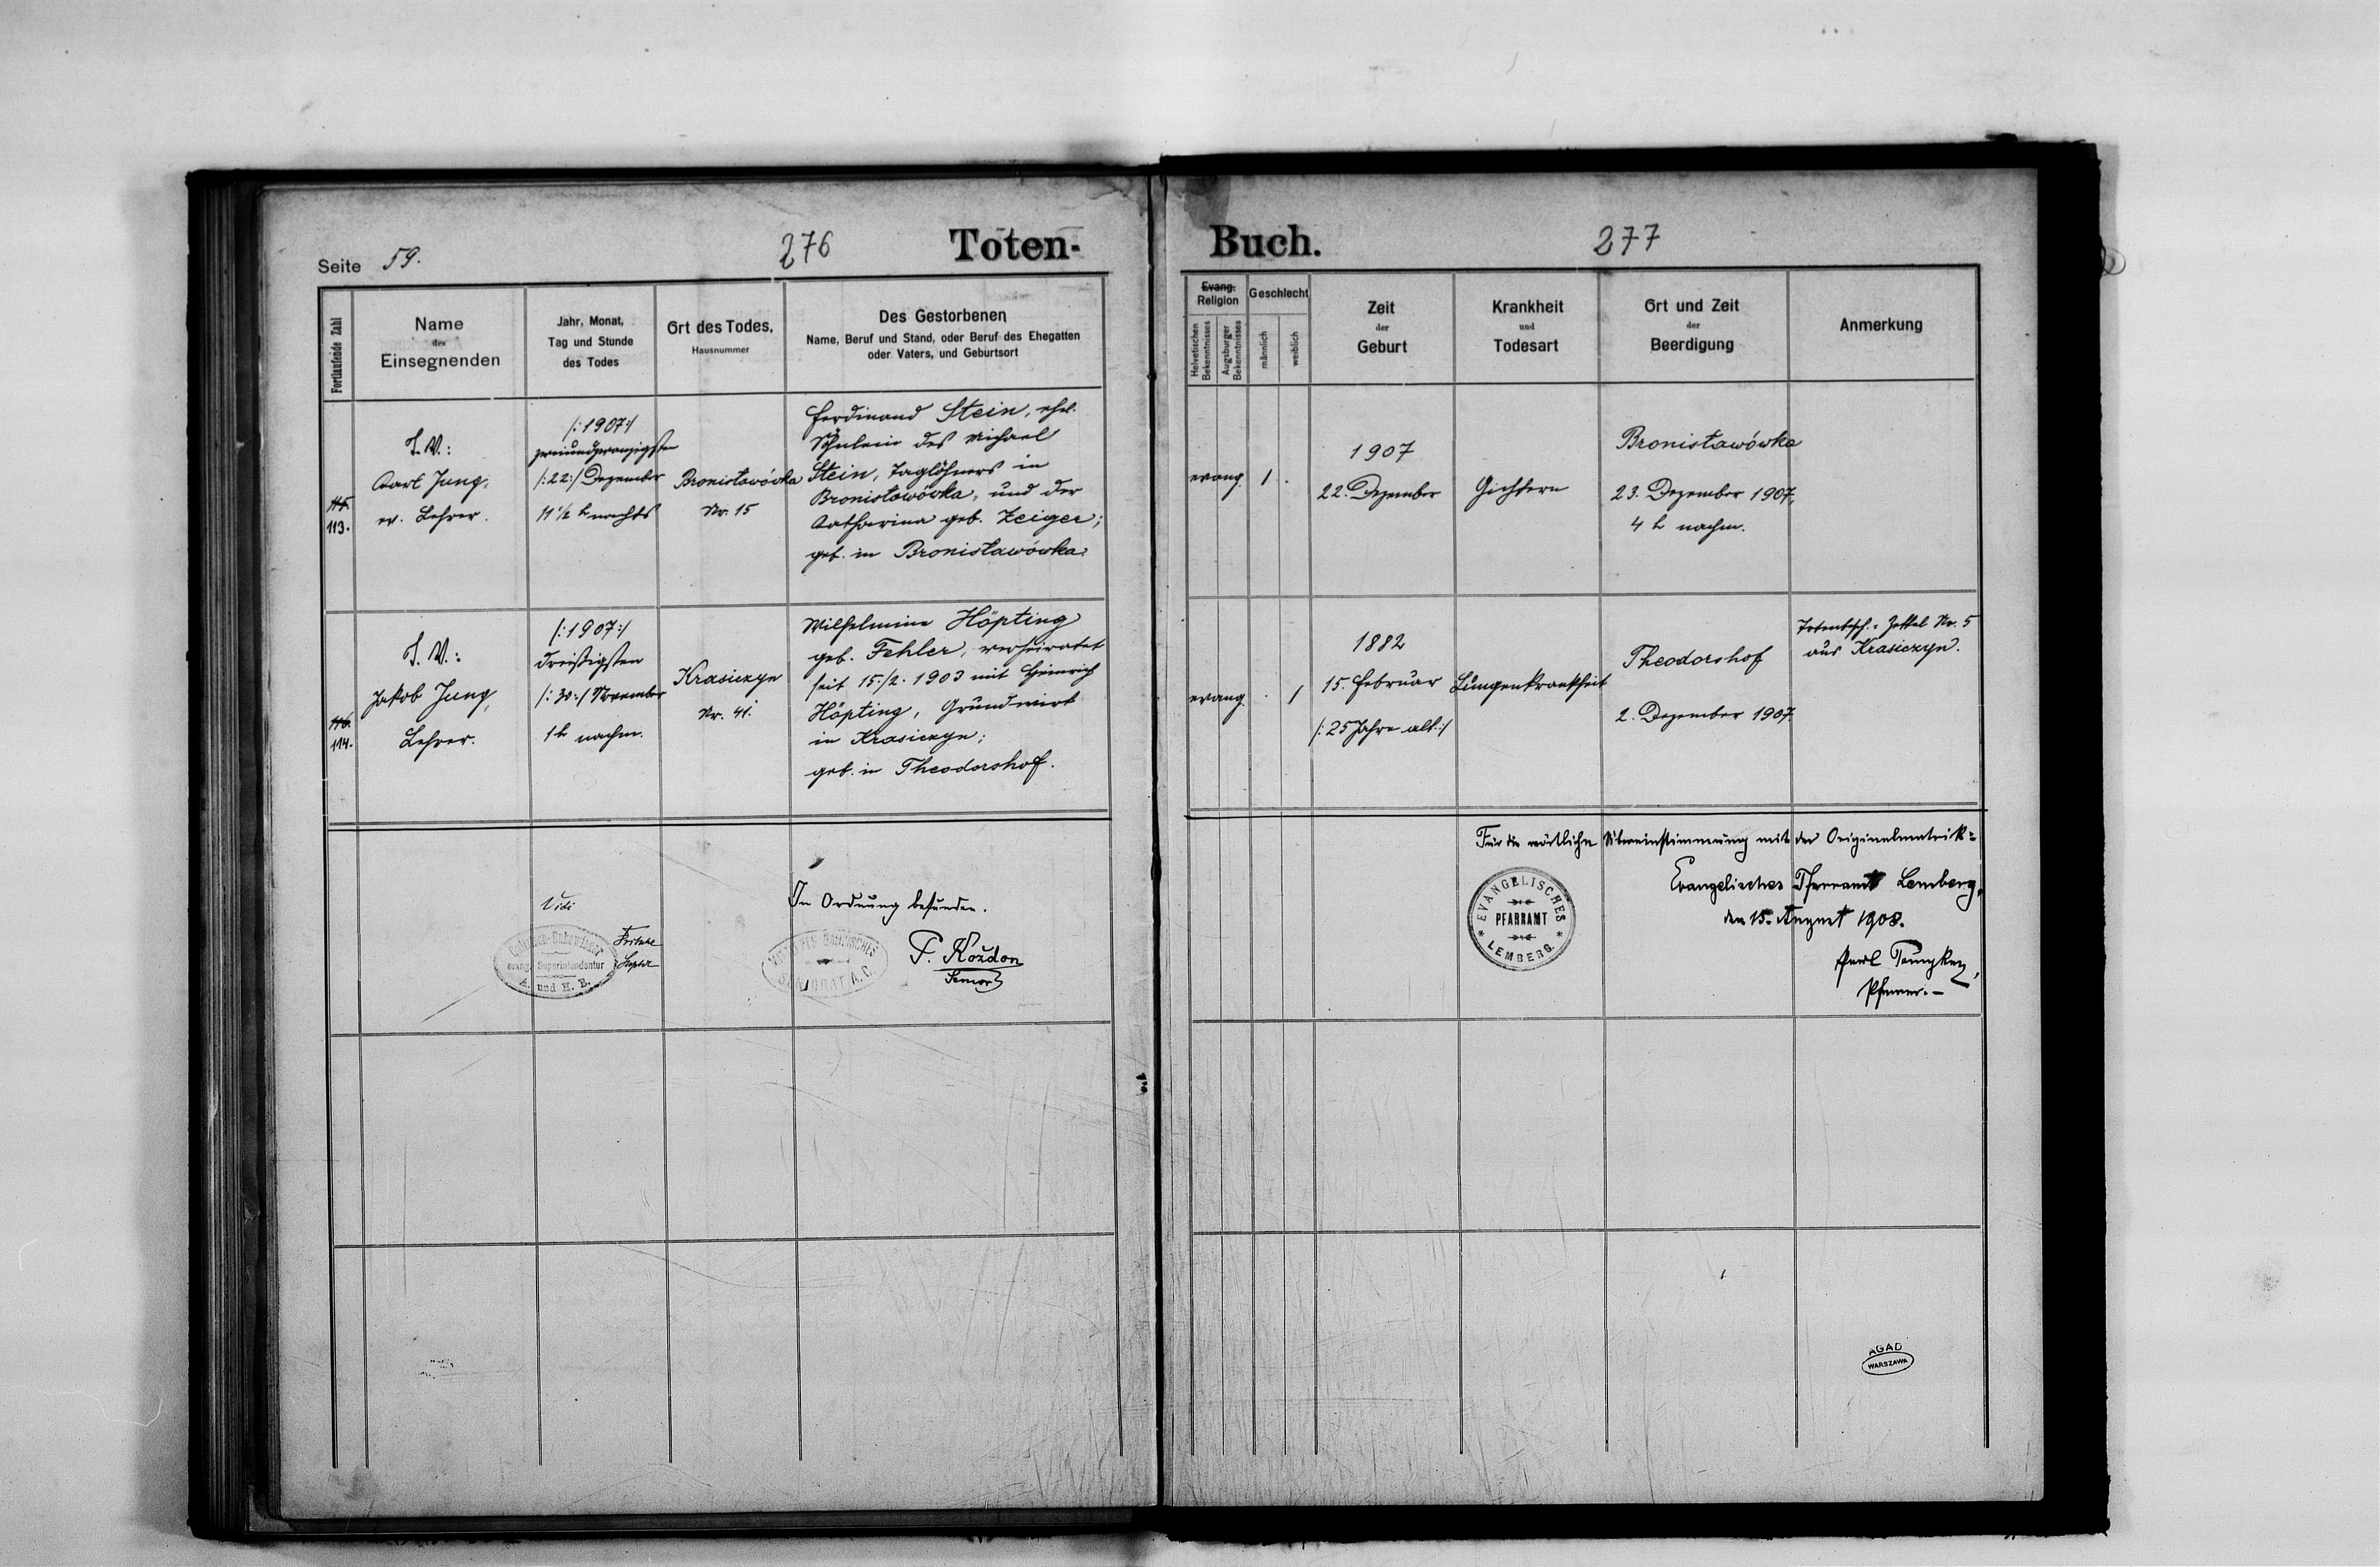 Seite 59.
276
Toten-
Fortlaufende Zahl
Name
des
Einsegnenden
Jahr, Monat,
Tag und Stunde
des Todes
Ort des Todes,
Hausnummer
Des Gestorbenen
Name, Beruf und Stand, oder Beruf des Ehegatten
oder Vaters, und Geburtsort
115.
113.
I. V.:
Karl Jung,
ev. Lehrer.
/:1907:/
zweiundzwanzigsten
/:22:/ Dezember
11 1/2 h nachts
Bronisławówka
Nr. 15
Ferdinand Stein, ehel.
Söhnlein des Michael
Stein, Taglöhners in
Bronisławówka, und der
Katharina geb. Zeiger;
geb. in Bronisławówka.
116.
114.
I. V.:
Jakob Jung,
Lehrer.
/:1907:/
dreißigsten
/:30:/ November
1 h nachm.
Krasiczyn
Nr. 41.
Wilhelmine Höpting
geb. Fehler, verheiratet
seit 15./2. 1903 mit Heinrich
Höpting, Grundwirt
in Krasiczyn;
geb. in Theodorshof.
Vidi
evang. Superintendentur
A. und H. B.
In Ordnung befunden.
SENIORAT A. C.
F. Kozdon
Senior
Buch.
277
Evang.
Religion
Helvetischen
Bekenntnisses
Augsburger
Bekenntnisses
Geschlecht
männlich
weiblich
Zeit
der
Geburt
Krankheit
und
Todesart
Ort und Zeit
der
Beerdigung
Anmerkung
evang.
1
.
1907
22. Dezember
Gichtern
Bronisławówka
23. Dezember 1907,
4 h nachm.
evang.
.
1
1882
15. Februar
/:25 Jahre alt:/
Lungenkrankheit
Theodorshof
2. Dezember 1907
Totenbsch.-Zettel Nr. 5
aus Krasiczyn.
Für die wörtliche Übereinstimmung mit der Originalmatrik:
Evangelisches Pfarramt Lemberg,
den 15. August 1908.
Pfarrer.-
EVANGELISCHES
PFARRAMT
LEMBERG.
AGAD
WARSZAWA